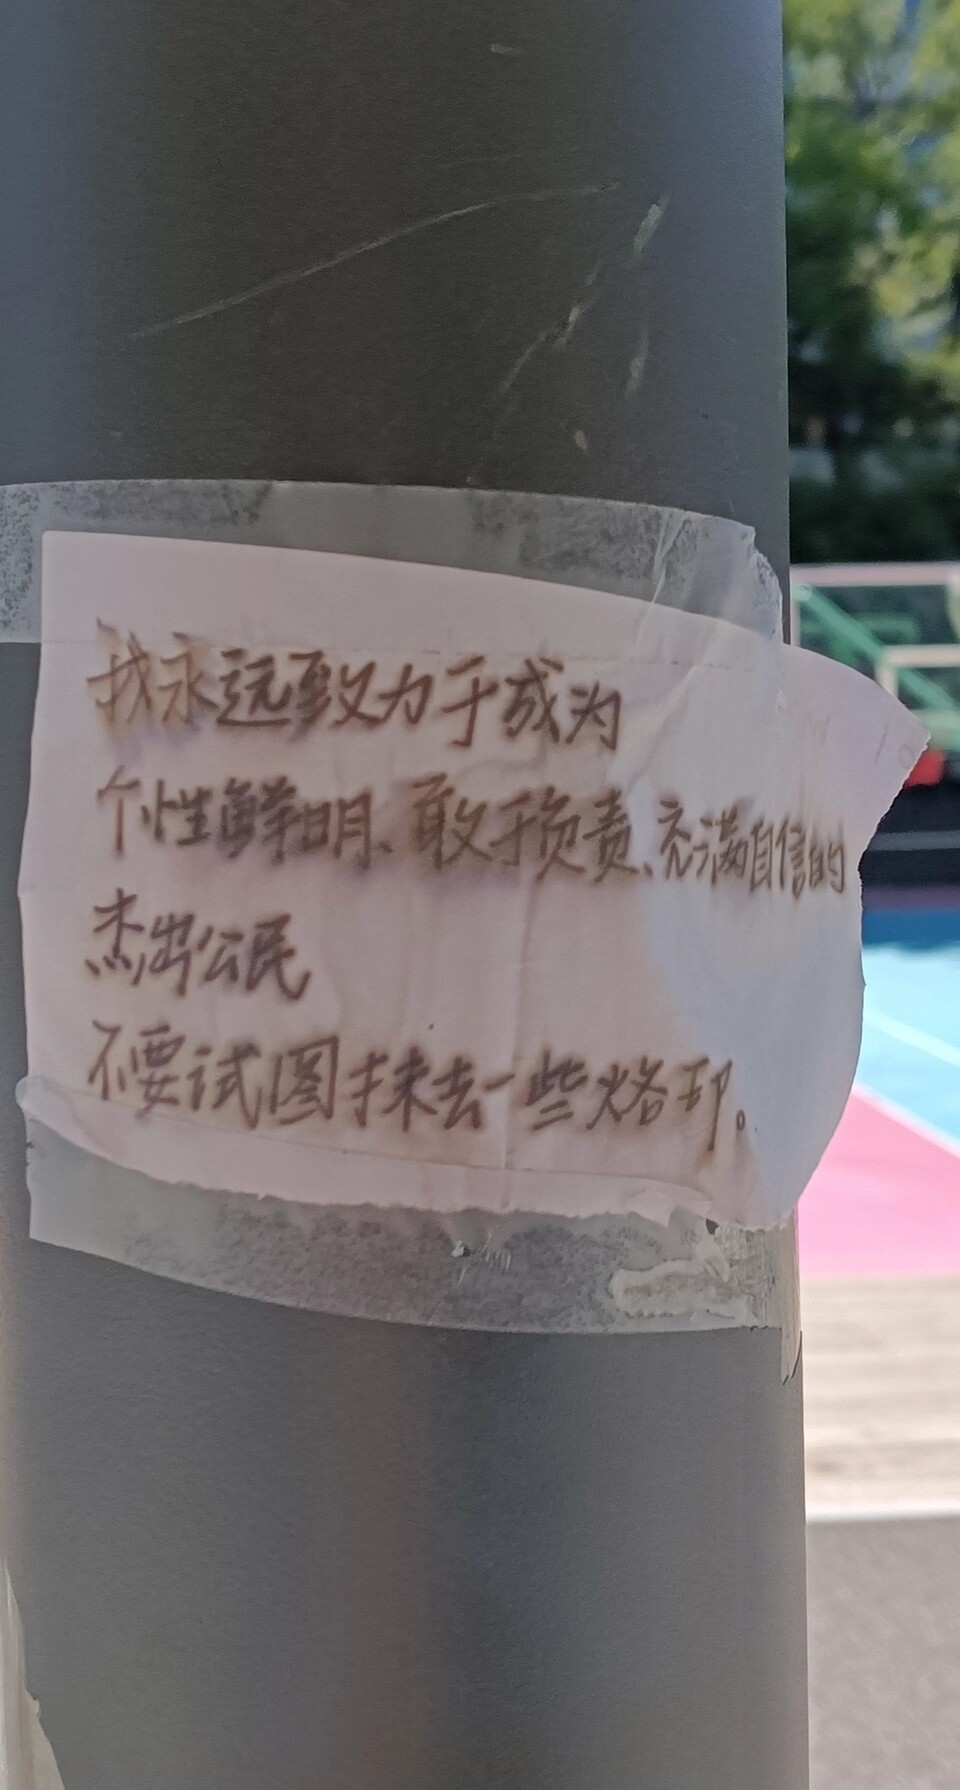 我永远致力于成为
个性鲜明、敢于负责、充满自信的
杰出公民
不要试图抹去一些烙印。